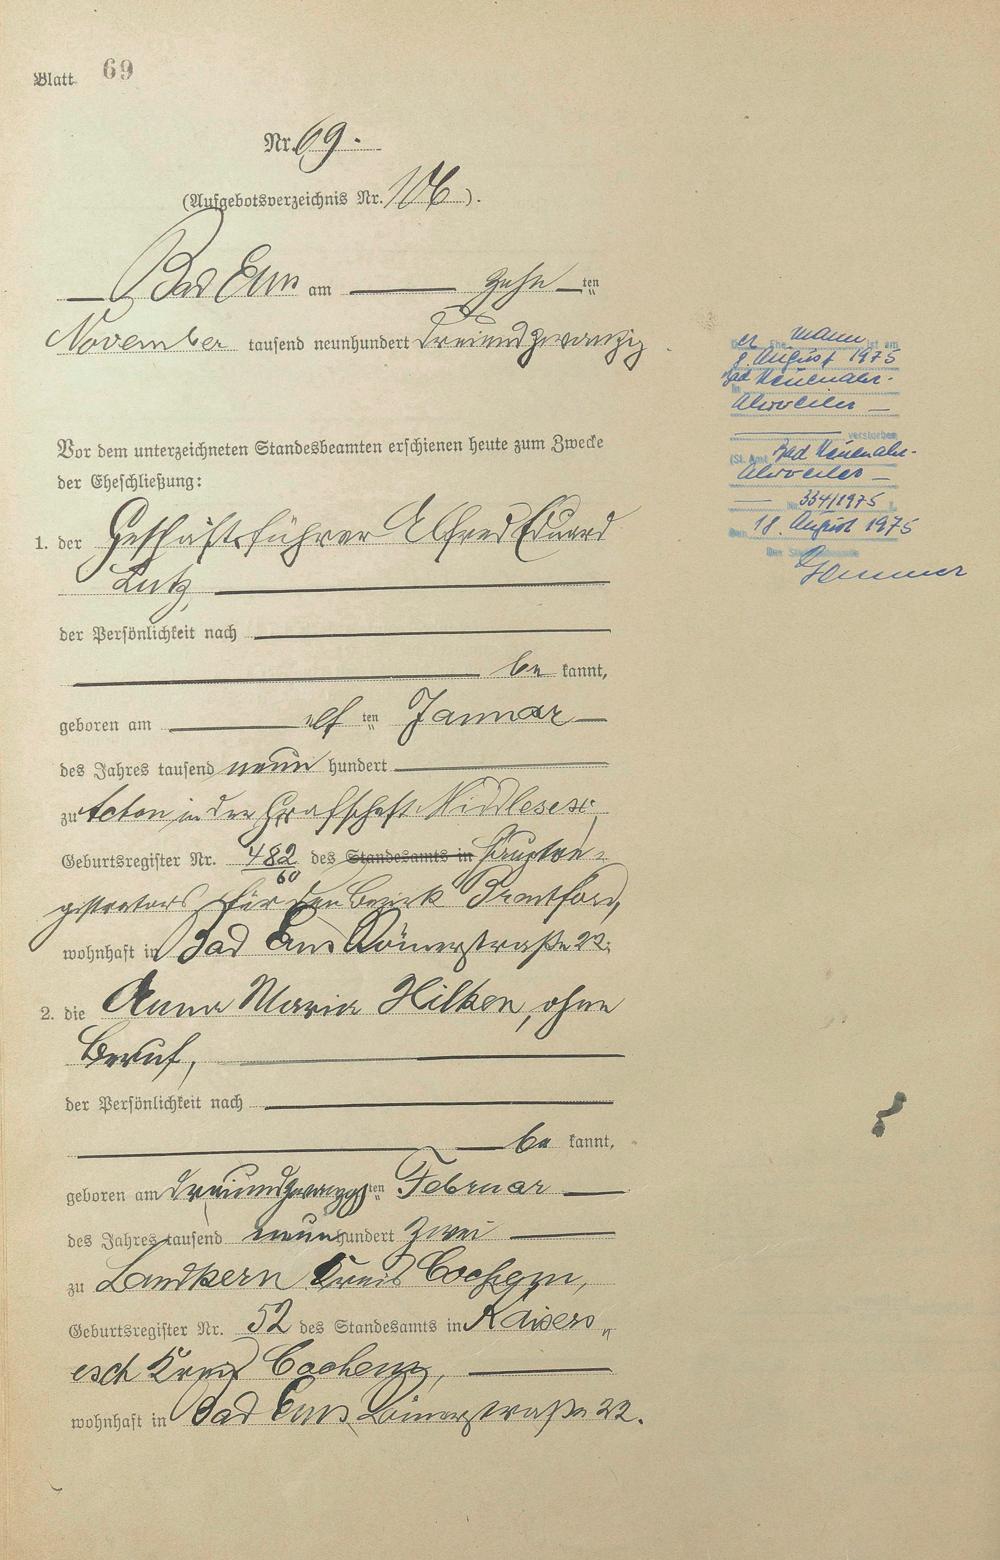 Blatt 69
Nr. 69.
(Aufgebotsverzeichnis Nr. 106).
Bad Ems am zehn ten
November tausend neunhundert dreiundzwanzig
Vor dem unterzeichneten Standesbeamten erschienen heute zum Zwecke
der Eheschließung:
1. der Geschäftsführer Alfred Eduard
Lutz,
der Persönlichkeit nach
be kannt,
geboren am elf ten Januar
des Jahres tausend neun hundert
zu Acton in der Grafschaft Middlesex,
Geburtsregister Nr. 482/60 des Standesamts in Hauptre-
gistrators für den Bezirk Brentford,
wohnhaft in Bad Ems Römerstraße 22;
2. die Anna Maria Hilken, ohne
Beruf,
der Persönlichkeit nach
be kannt,
geboren am dreiundzwanzigsten Februar
des Jahres tausend neun hundert zwei
zu Landkern Kreis Cochem,
Geburtsregister Nr. 52 des Standesamts in Kaisers„
esch Kreis Cochem,
wohnhaft in Bad Ems Römerstraße 22.
Der Ehemann ist am
9. August 1975
in Bad Neuenahr-
Ahrweiler —
verstorben
(St. Amt Bad Neuenahr-
Ahrweiler —
Nr. 334/1975
Den 18. August 1975
Der Standesbeamte